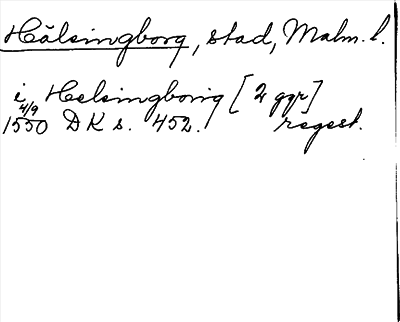 Hälsingborg, stad, Malm. l.
i Helsingborig [2 ggr]
4/9
1550 DK s. 452. regest.